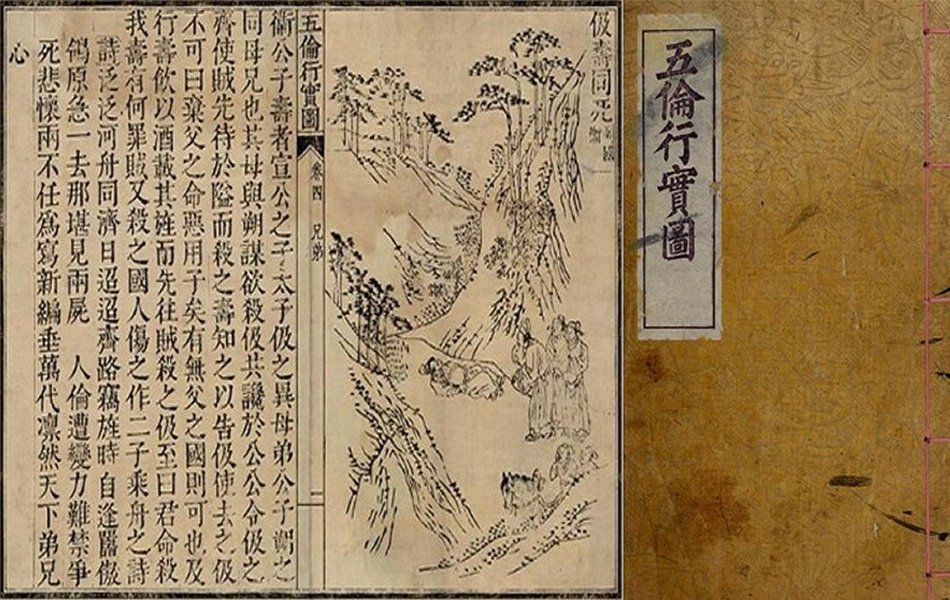 五倫行實圖
伋壽同死 衛國
五倫行實圖 卷四 兄弟 一
衛公子壽者宣公之子太子伋之異母弟公子朔之
同母兄也其母與朔謀欲殺伋共讒於公公令伋之
齊使賊先待於隘而殺之壽知之以告伋使去之伋
不可曰棄父之命惡用子矣有無父之國則可也及
行壽飮以酒載其旌而先往賊殺之伋至曰君命殺
我壽有何罪賊又殺之國人傷之作二子乘舟之詩
詩泛泛河舟同濟日迢迢齊路竊旌時自逢嚚傲
鴒原急一去那堪見兩屍 人倫遭變力難禁爭
死悲懷兩不任爲寫新編垂萬代凛然天下弟兄
心